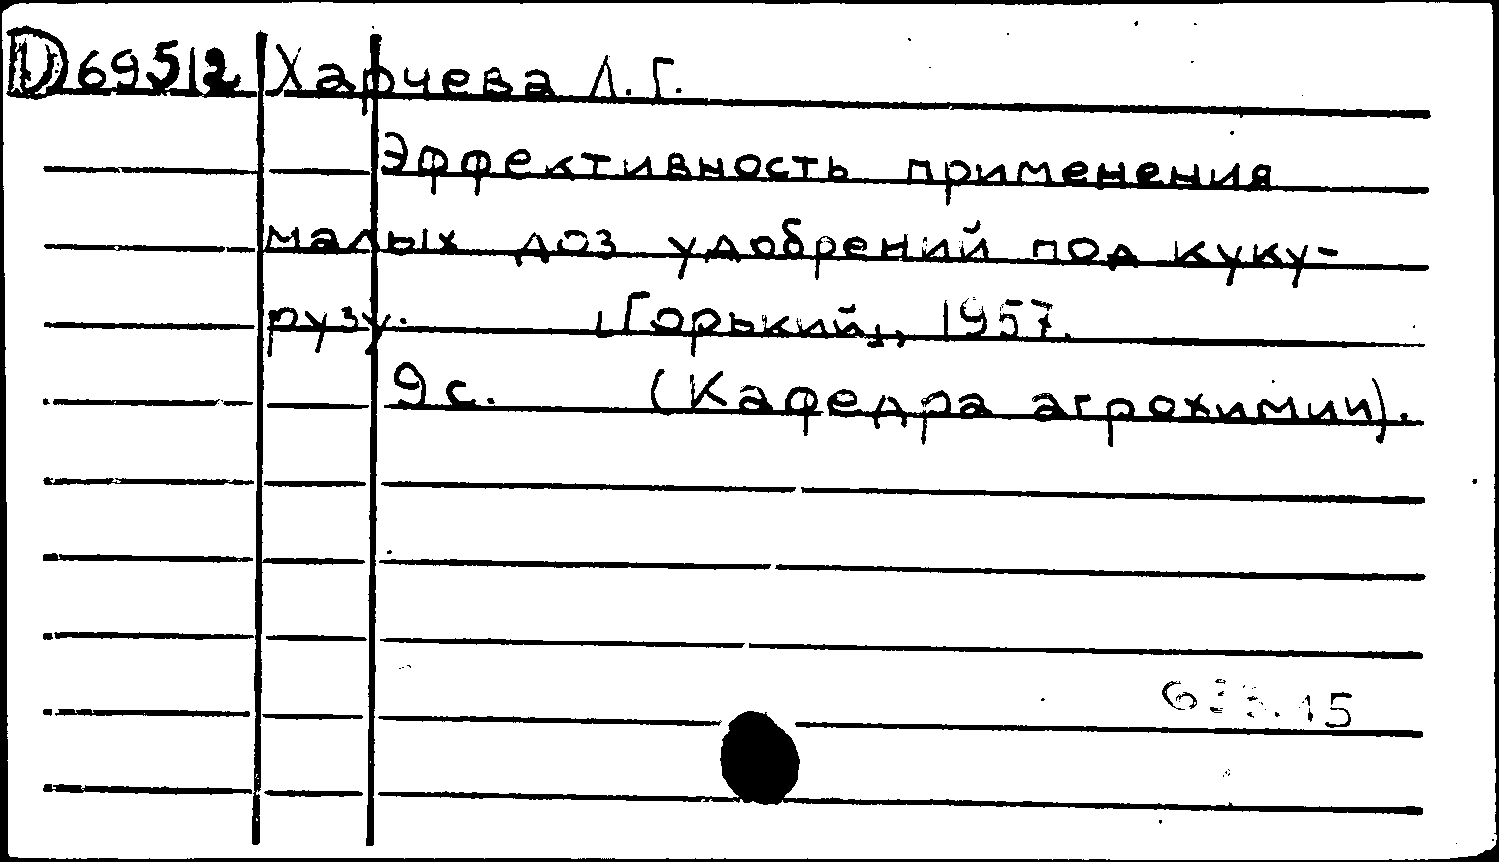 D69512 Харчева Л.Г.
Эффективность применения
малых доз удобрений под куку-
рузу. [Горький], 1957.
9с. (Кафедра агрохимии).
633.15